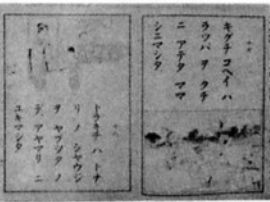 キグチコヘイハ
ラツパヲクチ
ニアテタママ
シニマシタ
トラキチハトナ
リノシヤウジ
ヲヤブツタノ
デアヤマリニ
ユキマシタ